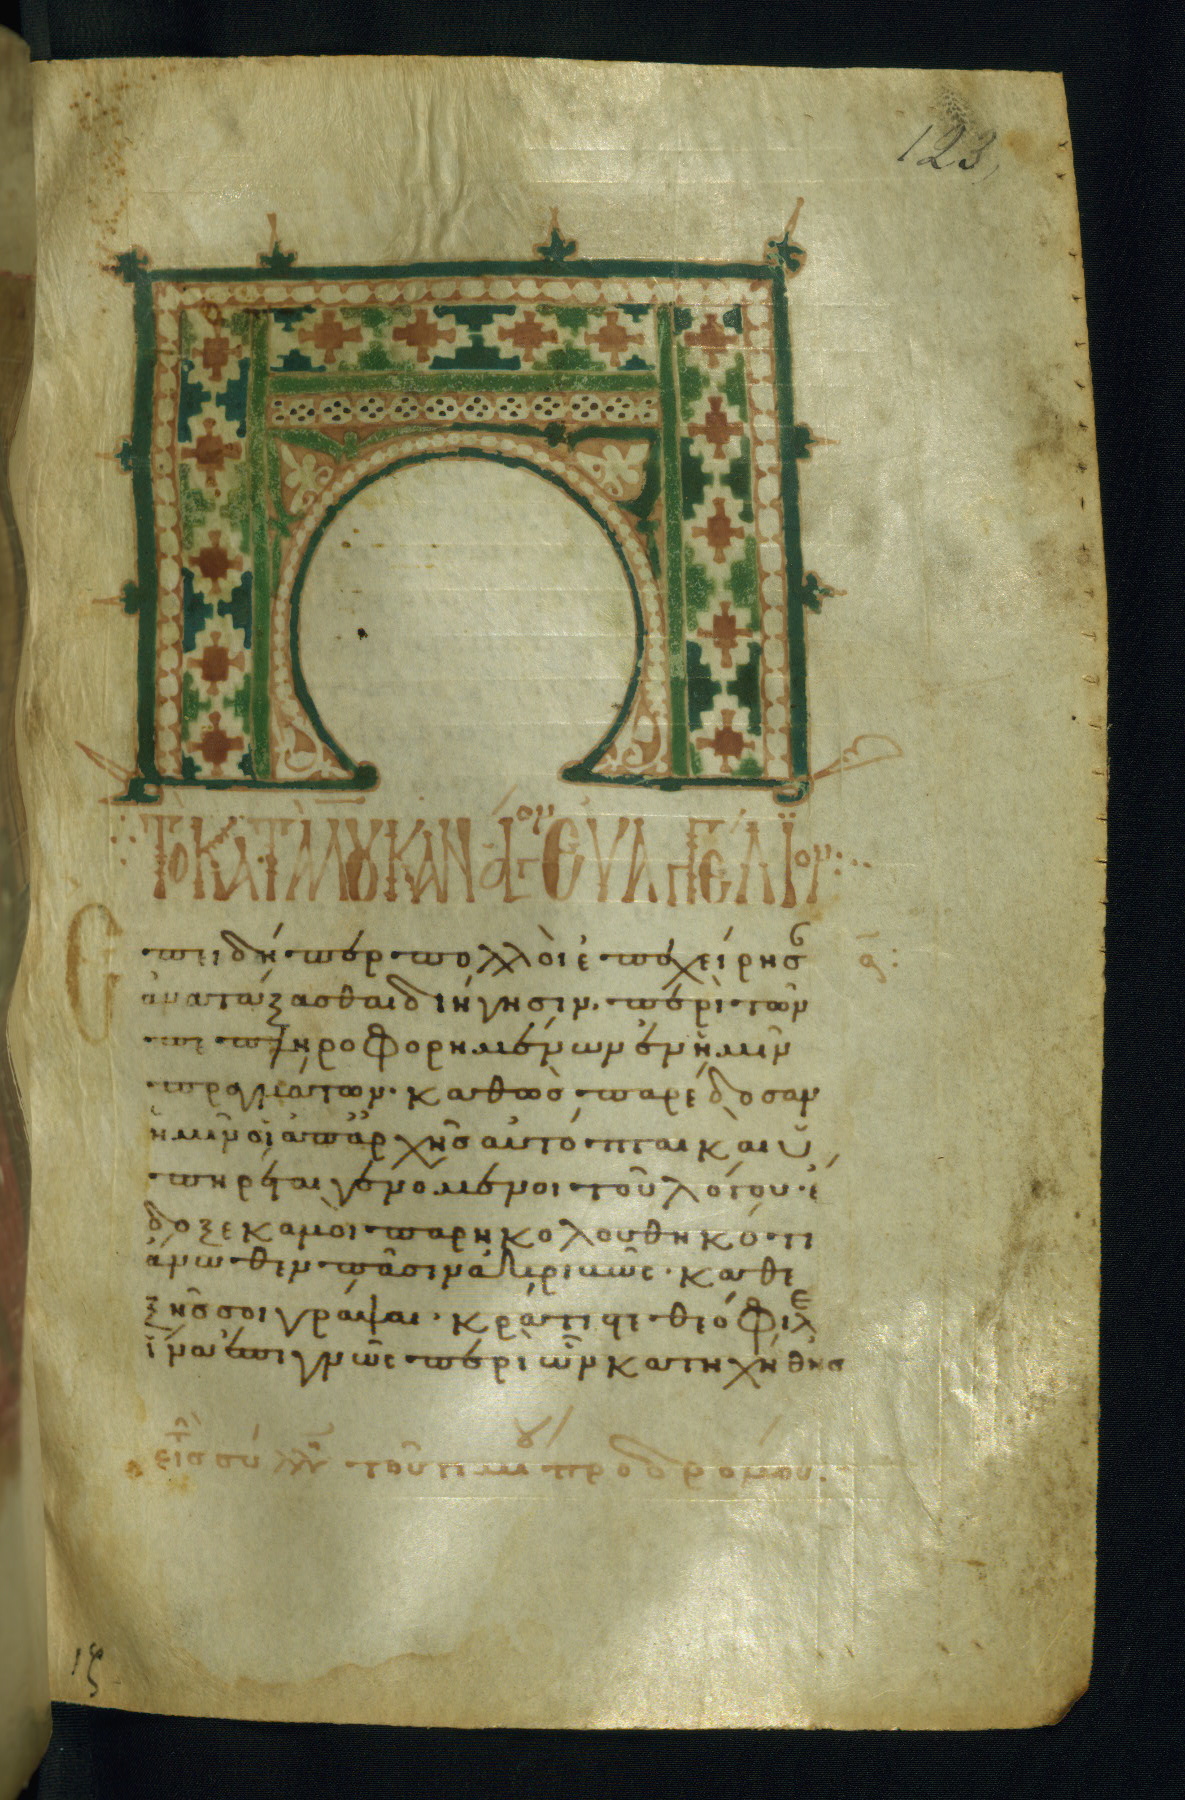 123
ΤΟ ΚΑΤΑ ΛΟΥΚΑΝ ἅγιον ΕΥΑΓΓΕΛΙον:
Ἐπειδήπερ πολλοὶ ἐπεχείρησ
ἀνατάξασθαι διήγησιν· περὶ τῶν
πεπληροφορημένων ἐν ἡμῖν
πραγμάτων· καθὼς παρέδοσαν
ἡμῖν οἱ ἀπ' ἀρχῆς αὐτόπται καὶ ὑ
πηρέται γενόμενοι τοῦ λόγου· ἔ
δοξε καμοὶ παρηκολουθηκότι
ἄνωθεν πᾶσιν ἀκριβῶς· καθε
ξῆς σοι γράψαι· κράτιστε θεόφιλε
ἵνα ἐπιγνῶς περὶ ὧν κατηχήθης
α:
εἰς τοῦ τιμ προδρόμου.
ις